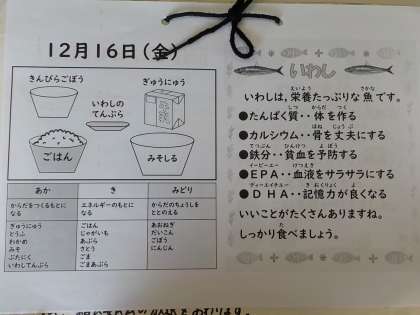 12月16日(金)
きんぴらごぼう
ぎゅうにゅう
いわしの
てんぷら
ごはん
みそしる
あか
き
みどり
からだをつくるもとに
なる
エネルギーのもとに
なる
からだのちょうしを
ととのえる
ぎゅうにゅう
とうふ
わかめ
みそ
ぶたにく
いわしてんぷら
ごはん
じゃがいも
あぶら
さとう
ごま
ごまあぶら
あおねぎ
だいこん
ごぼう
にんじん
いわし
いわしは、栄養たっぷりな魚です。
●たんぱく質・・体を作る
●カルシウム・・骨を丈夫にする
●鉄分・・貧血を予防する
●EPA・・血液をサラサラにする
●DHA・・記憶力が良くなる
いいことがたくさんありますね。
しっかり食べましょう。